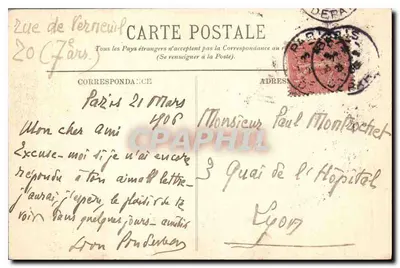 rue de Verneuil
20 (7e ars.)
CARTE POSTALE
Tous les Pays étrangers n'acceptent pas la Correspondance au
(Se renseigner à la Poste).
CORRESPONDANCE
ADRES
DEPA
PARIS
Paris 21 Mars
1906
Mon cher ami
Excuse-moi si je n'ai encore
repondu à ton aimable lettre
j'aurai, j'espère, le plaisir de te
voir dans quelques jours - amitiés
Léon
Monsieur Paul
3 Quai de l'Hôpital
Lyon
CPAPHIL